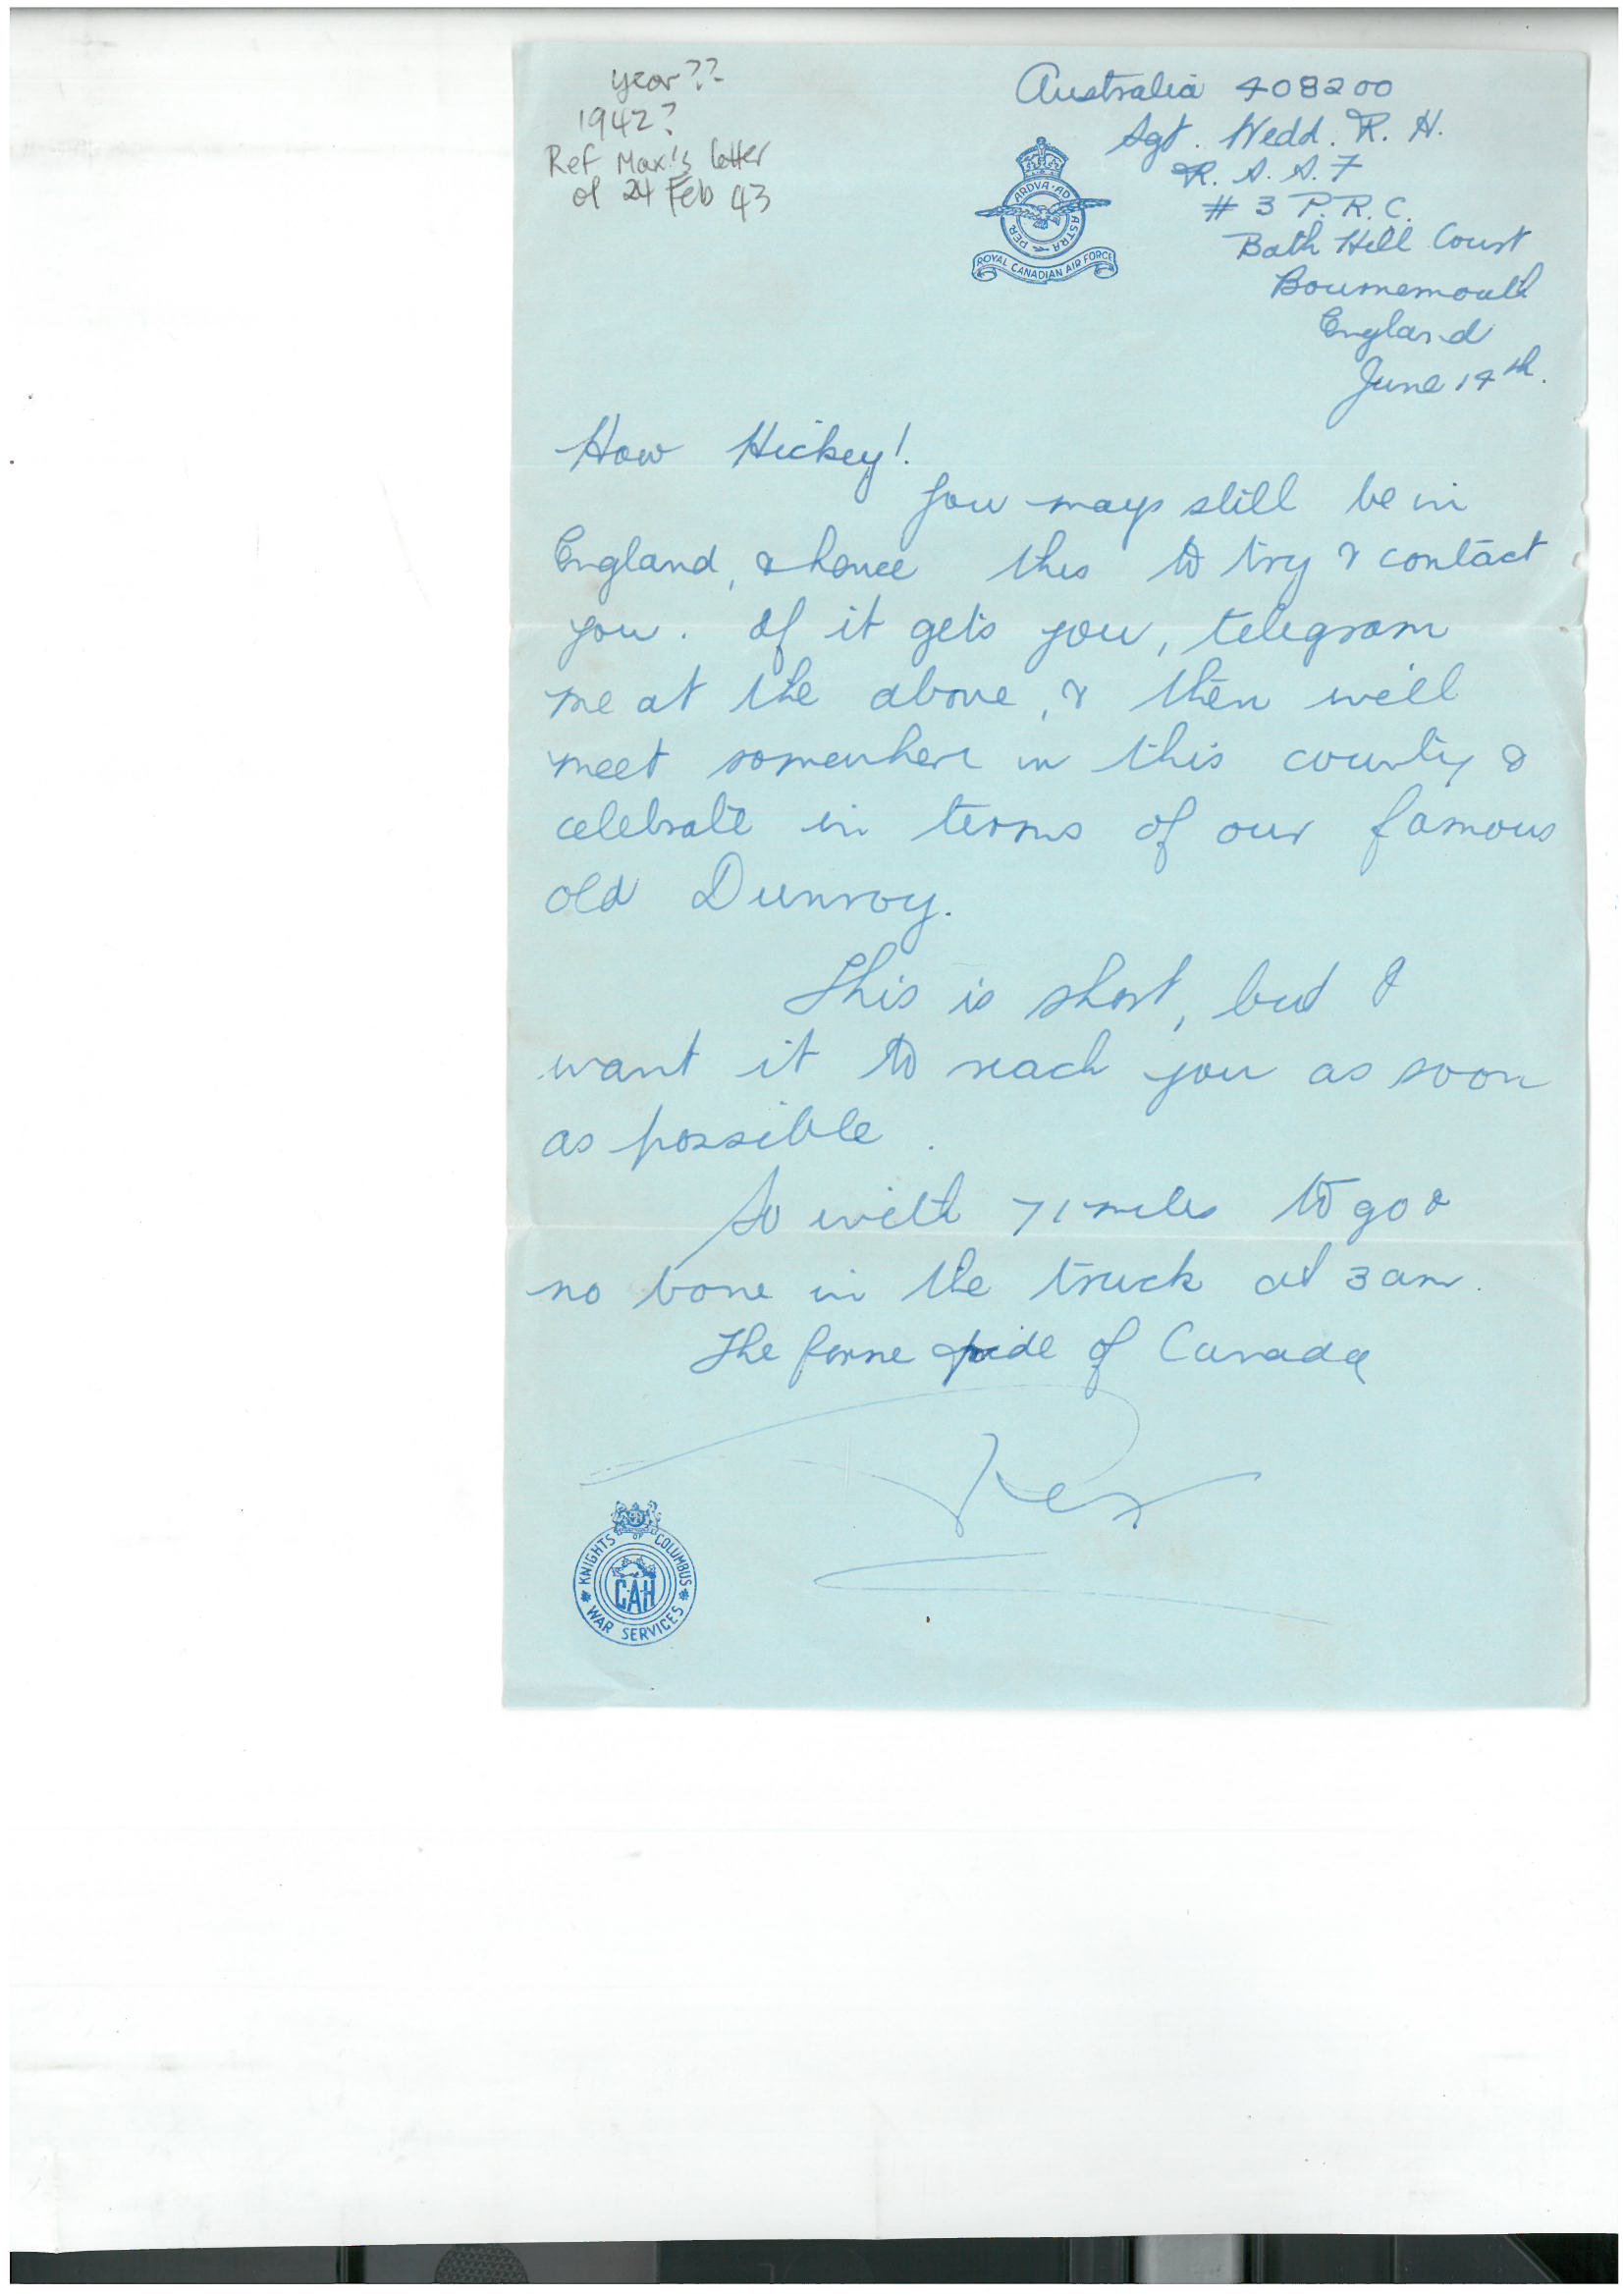 year??
1942?
Ref Max's letter
of 24 Feb 43
Australia 408200
Sgt. Wedd. R. H.
R. A. A. F
# 3 P. R. C.
Bath Hill Court
Bournemouth
England
June 14th.
PER ARDVA AD ASTRA
ROYAL CANADIAN AIR FORCE
How Hickey!
You may still be in
England, & hence this to try & contact
you. If it gets you, telegram
me at the above, & then we'll
meet somewhere in this county &
celebrate in terms of our famous
old Dunroy.
This is short, but I
want it to reach you as soon
as possible.
So with 71 miles to go &
no bone in the truck at 3 am.
The pride of Canada
Rex
KNIGHTS OF COLUMBUS
CAH
WAR SERVICES